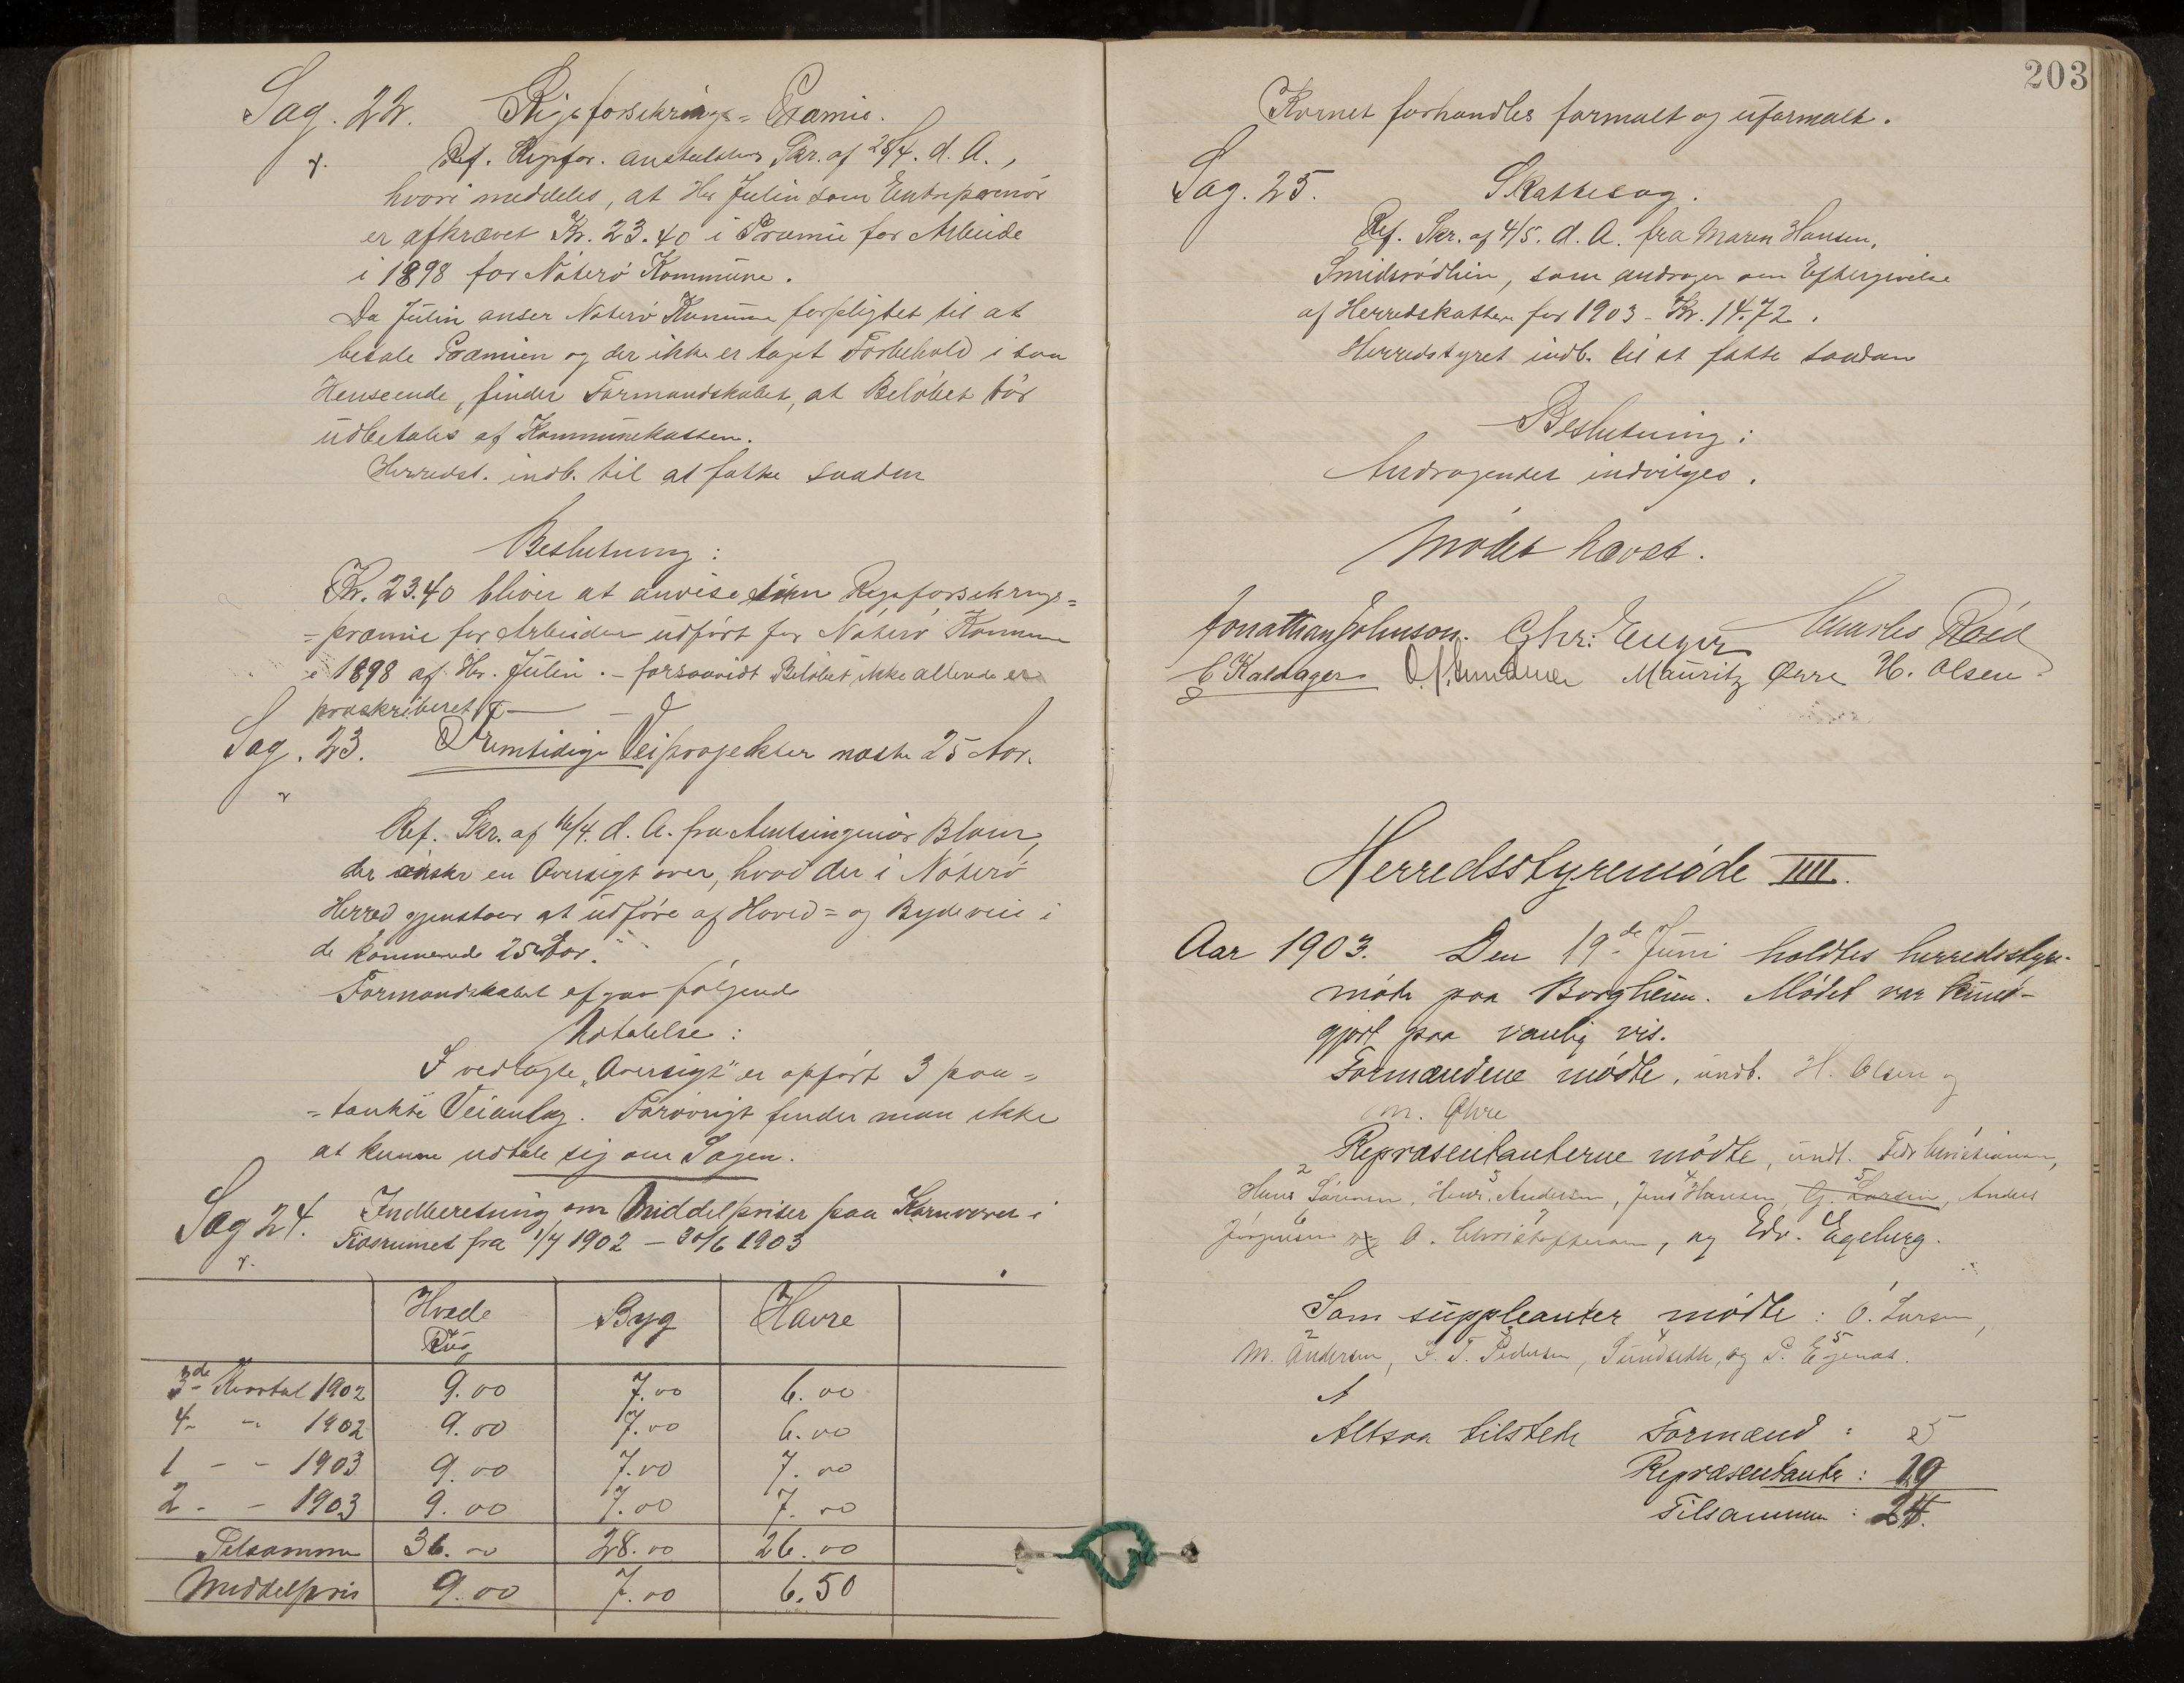 Sag. 22. Rigsforsikrings = Præmie.
Ref. Rigsfor. anstaltens Skr. af 28/4. d. A.,
hvori meddeles, at Hr Julin som Entreprenør
er afkrævet Kr. 23.40 i Præmie for Arbeide
i 1898 for Nøterø Kommune.
Da Julin anser Nøterø Kommune forpligtet til at
betale Præmien og der ikke er taget Forbehold i saa
Henseende, finder Formandskabet, at Beløbet bør
udbetales af Kommunekassen.
Herredst. indb. til at fatte saadan
Beslutning:
Kr. 23.40 bliver at anvise som Rigsforsikrings=
=præmie for Arbeider udført for Nøterø Kommune
i 1898 af Hr. Julin. – forsaavidt Beløbet ikke allerede er
præskriberet.
Sag. 23. Fremtidige Veiprojekter næste 25 Aar.
Ref. Skr. af 16/4. d. A. fra Amtsingeniør Blom,
der ønsker en Oversigt over, hvad der i Nøterø
Herred gjenstaar at udføre af Hoved= og Bygdeveie i
de kommende 25 Aar.
Formandskabet afgav følgende
Udtalelse:
I vedlagte „Oversigt" er opført 3 paa=
=tænkte Veianlæg. Forøvrigt finder man ikke
at kunne udtale sig om Sagen.
Sag 24. Indberetning om Middelpriser paa Kornvarer i
Tidsrumet fra 1/7 1902 – 30/6 1903
Hvede Byg Havre
Rug
3de Kvartal 1902 9.00 7.00 6.00
4 – " 1902 9.00 7.00 6.00
1 – – 1903 9.00 7.00 7.00
2 – – 1903 9.00 7.00 7.00
Tilsammen 36.00 28.00 26.00
Middelpris 9.00 7.00 6.50
203
Kornet forhandles formalt og uformalt.
Sag. 25. Skattesag.
Ref. Skr. af 4/5. d. A. fra Maren Hansen,
Smidsrødhein, som andrager om Eftergivelse
af Herredskatten for 1903 – Kr. 14.72.
Herredstyret indb. til at fatte saadan
Beslutning:
Andragendet indvilges.
Mødet hævet.
Jonathan Johnson. Chr: Enger Charles Røed
C Kaldager Mauritz Øhre H. Olsen.
Herredsstyremøde IIII.
Aar 1903. Den 19de Juni holdtes herredsstyre-
møde paa Borgheim. Mødet var kund-
gjort paa vanlig vis.
Formændene mødte, undt. H. Olsen og
M. Øhre
Repræsentanterne mødte, undt. Fedr Christiansen,
2 3 4 5
Hans Sørensen, Henr. Andersen, Jens Hansen, G. Larsen, Anders
6 7
Jørgensen og A. Christophersen, og Edv. Egeberg.
Som suppleanter mødte: O. Larsen,
2 3 4 5
M. Andersen, F. T. Pedersen, Sundseth, og P. Ejenæs.
A
Altsaa tilstede Formænd: 5
Repræsentanter: 19
Tilsammen: 24.